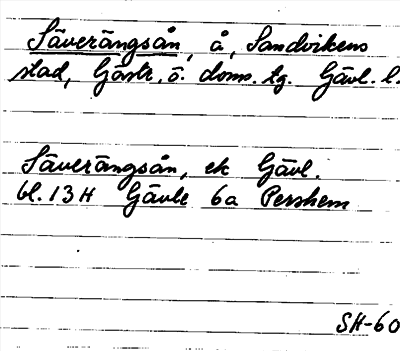 Säverängsån, å, Sandvikens
stad, Gästr. ö. doms. tg. Gävl. l.
Säverängsån, ek Gävl.
bl. 13H Gävle 6a Pershem
SH-60